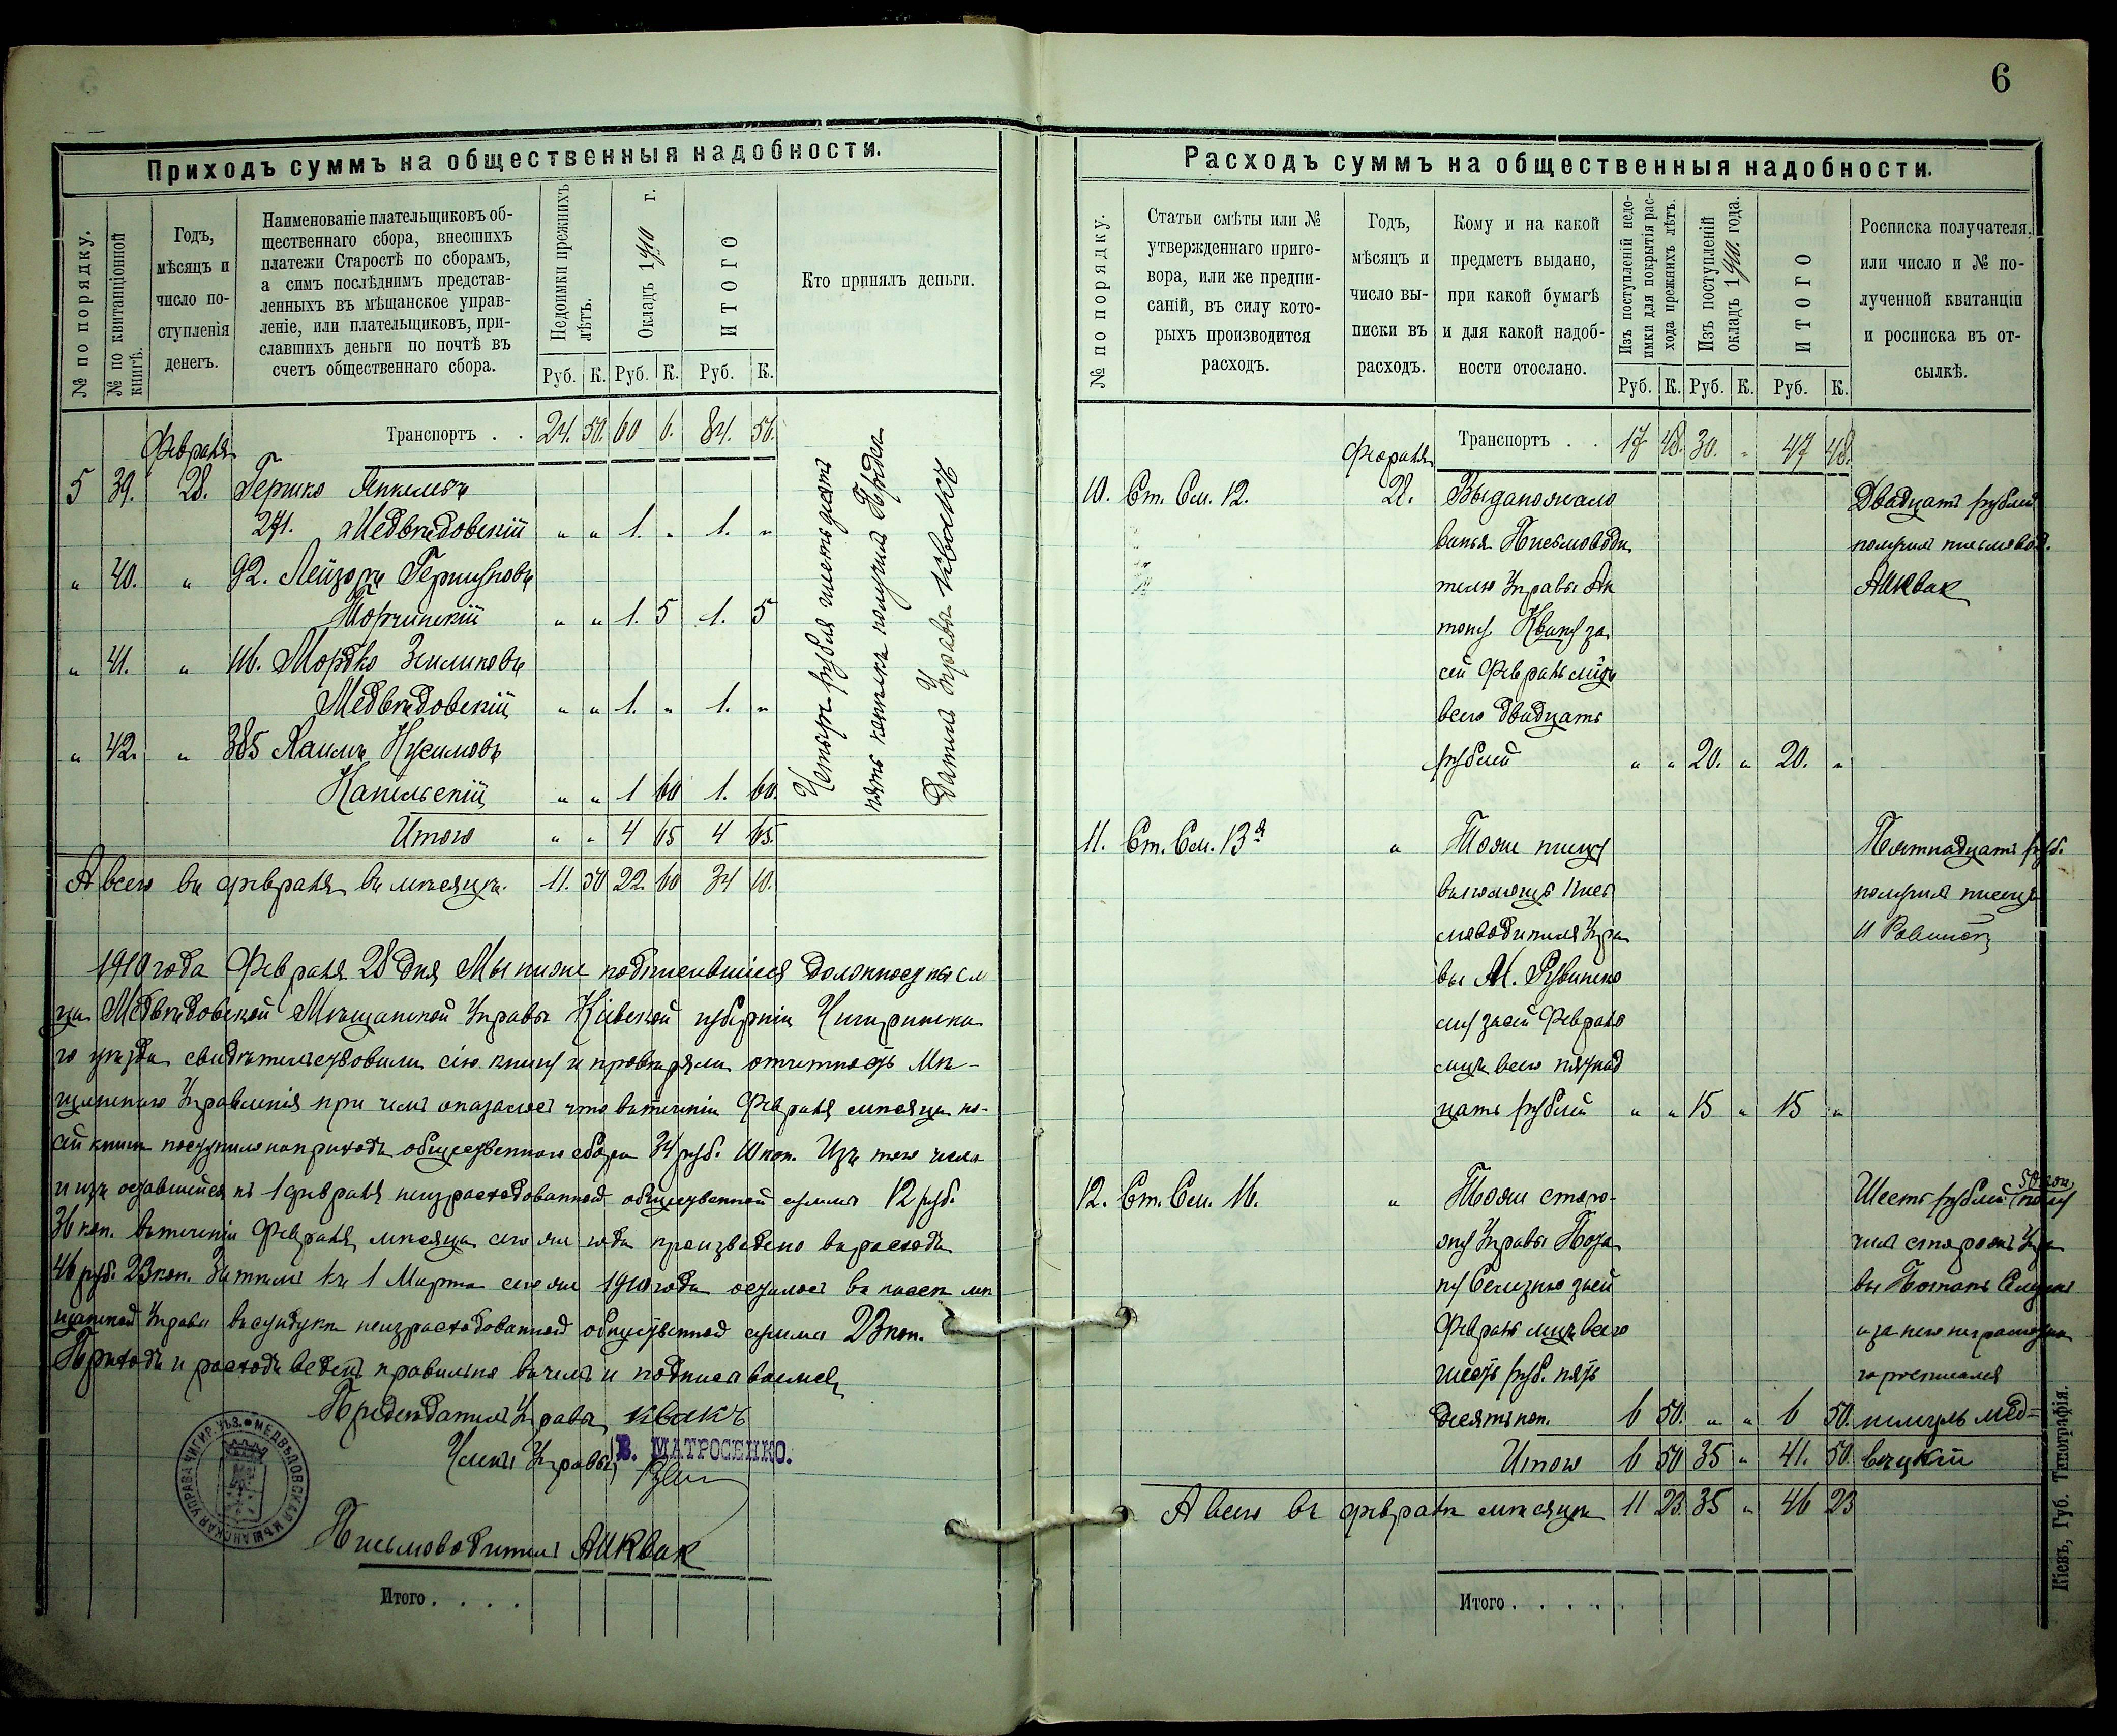 6
Приходъ суммъ на общественныя надобности.
№ по порядку.
№ по квитанціонной книгѣ.
Годъ,
мѣсяцъ и
число по-
ступленія
денегъ.
Наименованіе плательщиковъ об-
щественнаго сбора, внесшихъ
платежи Старостѣ по сборамъ,
а симъ послѣднимъ представ-
ленныхъ въ мѣщанское управ-
леніе, или плательщиковъ, при-
славшихъ деньги по почтѣ въ
счетъ общественнаго сбора.
Недоимки прежнихъ
лѣтъ.
Окладъ 1910 г.
ИТОГО
Руб. К. Руб. К. Руб. К.
Кто принялъ деньги.
Транспортъ . . 24. 50. 60 6. 84. 56.
Февраля
5 39. 28. Гершко Янкелевъ
271. Медвѣдовскій „ „ 1. „ 1. „
„ 40. „ 92. Лейзоръ Гершковъ
„ „ 1. 5 1. 5
„ 41. „ 116. Мордко Зейликовъ
Медвѣдовскій „ „ 1. „ 1. „
„ 42. „ 385 Хаимъ Нусимовъ
Капельскій „ „ 1 60 1. 60.
Итого „ „ 4 65 4 65.
А всего въ февралѣ въ мѣсяцѣ. 11. 50 22. 60 34 10.
Четыре рубля шестьдесятъ
пять копѣекъ получилъ Предсѣ
датель Управы Квакъ
1910 года Февраля 28 дня Мы ниже подписавшіеся должностныя ли
ца Медвѣдовской Мѣщанской Управы Кіевской губерніи Чигиринска
го уѣзда свидѣтельствовали сію книгу и провѣряли отчетность Мѣ-
щанскаго Управленія при чемъ оказалось что въ теченіи Февраля мѣсяца по
сей книгѣ поступило на приходъ общественнаго сбора 34 руб. 10 коп. Изъ того числа
и изъ оставшейся къ 1 февраля неизрасходованной общественной суммы 12 руб.
36 коп. въ теченіи Февраля мѣсяца сего же года произведено въ расходъ
46 руб. 23 коп. Затѣмъ къ 1 Марта сего же 1910 года осталось въ кассѣ мѣ
щанской Управы въ сундукѣ неизрасходованной общественной суммы 23 коп.
Приходъ и расходъ веденъ правильно въ чемъ и подписываемся
Предсѣдатель Управы Квакъ
Члены Управы В. МАТРОСЕНКО.
Письмоводитель А Квак
МЕДВѢДОВСКАЯ МѢЩАНСКАЯ УПРАВА ЧИГИР. УѢЗ.
Итого . . . .
Расходъ суммъ на общественныя надобности.
№ по порядку.
Статьи смѣты или №
утвержденнаго приго-
вора, или же предпи-
саній, въ силу кото-
рыхъ производится
расходъ.
Годъ,
мѣсяцъ и
число вы-
писки въ
расходъ.
Кому и на какой
предметъ выдано,
при какой бумагѣ
и для какой надоб-
ности отослано.
Изъ поступленій недо-
имки для покрытія рас-
хода прежнихъ лѣтъ.
Изъ поступленій
окладъ 1910 года.
ИТОГО
Руб. К. Руб. К. Руб. К.
Росписка получателя,
или число и № по-
лученной квитанціи
и росписка въ от-
сылкѣ.
Транспортъ . . 17 48. 30. „ 47 48.
Февраля
10. Ст. См. 12. 28. Выдано жало
ванья Письмоводи
телю Управы Ан
тону Кваку за
сей Февраль мѣцъ
всего двадцать
рублей „ „ 20. „ 20. „
Двадцать рублей
получилъ письмовод.
А Квак
11. Ст. См. 13 „ Тоже писцу
вы М. Рувинско
му за сей Февраль
мѣцъ всего пятнад
цать рублей „ „ 15 „ 15 „
Пятнадцать руб.
получилъ писецъ
12. Ст. См. 16. „ Тоже сторо-
жу Управы
за сей
Февраль мѣцъ всего
шесть руб. пять
десятъ коп. 6 50. „ „ 6 50.
Шесть рублей 50 коп. полу
чилъ сторожъ Упра
вы
а за него неграмотна
го росписался
Итого 6 50 35 „ 41. 50.
А всего въ февралѣ мѣсяцѣ 11 23. 35 „ 46 23
Итого . . . . .
Кіевъ, Губ. Типографія.